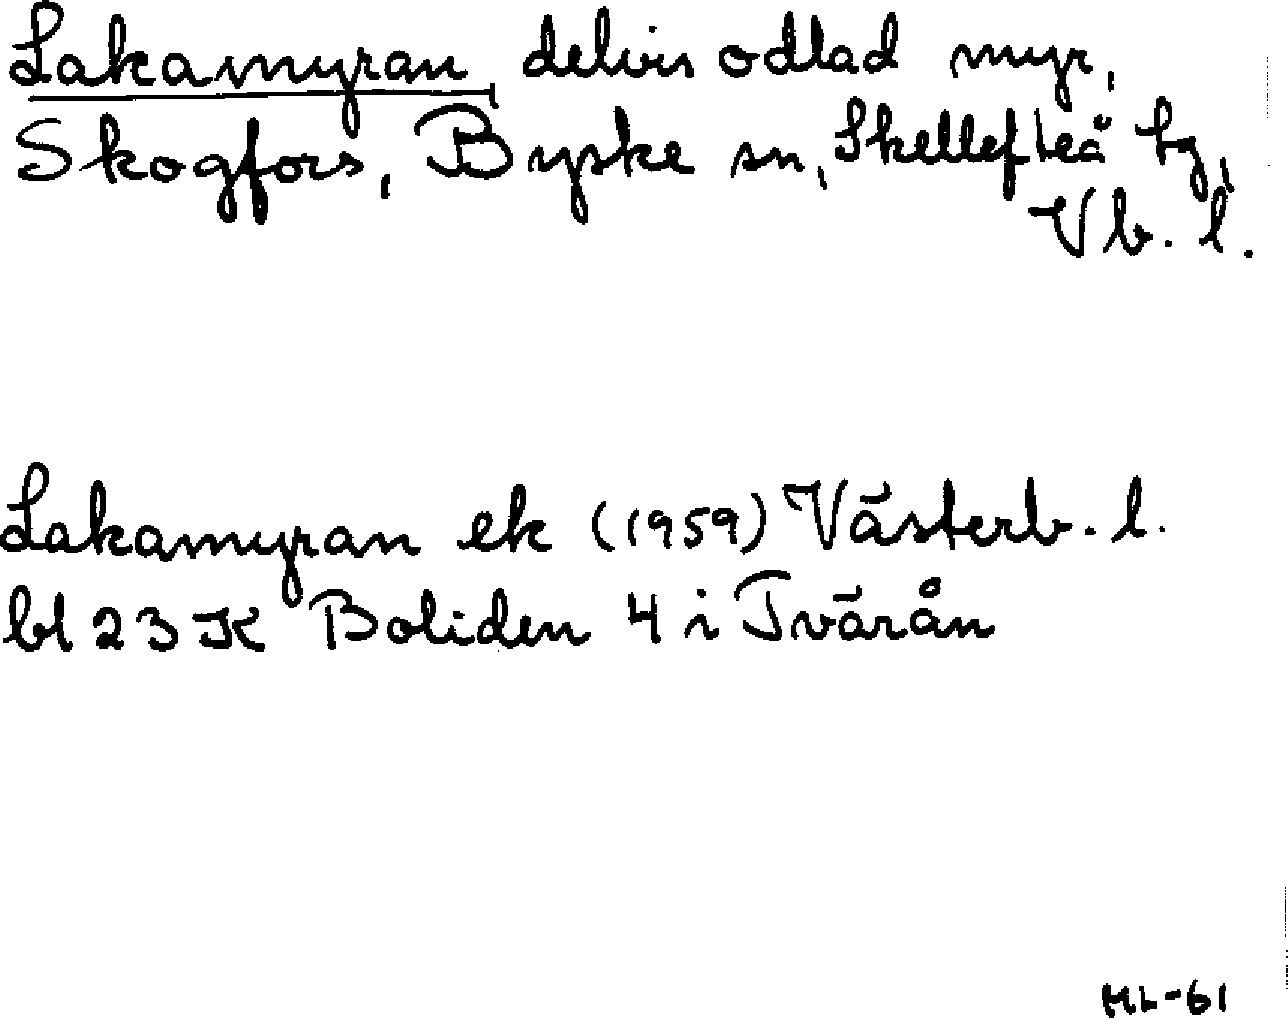 Lakamyran, delvis odlad myr,
Skogfors, Byske sn, Skellefteå tg,
Vb. l.
Lakamyran ek (1959) Västerb. l.
bl 23 K Boliden 4 i Tvärån
HL-61